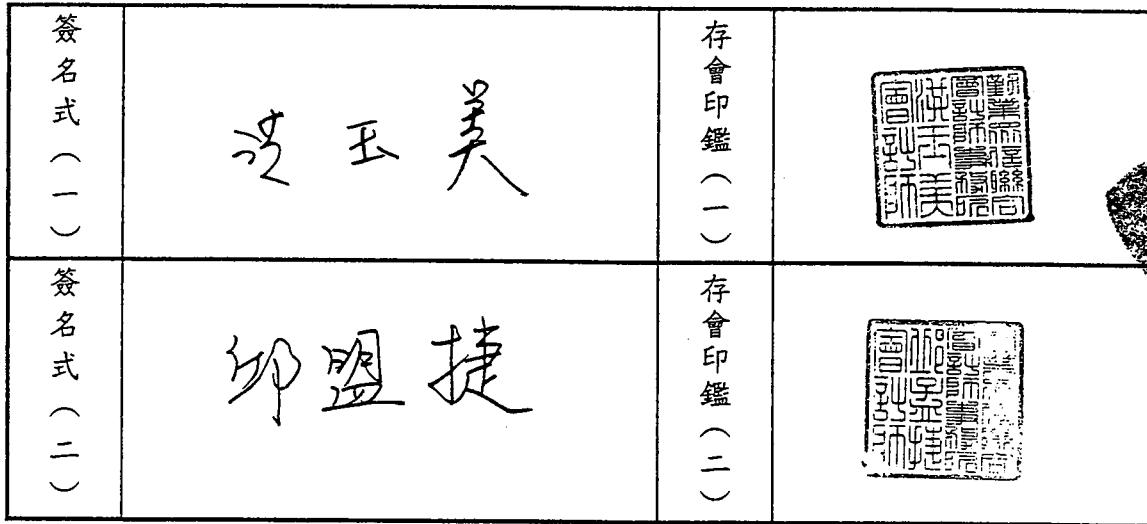 簽名式（一）
洪玉美
存會印鑑（一）
勤業眾信聯合
會計師事務所
洪玉美
會計師
簽名式（二）
邱盟捷
存會印鑑（二）
會計師事務所
邱盟捷
會計師